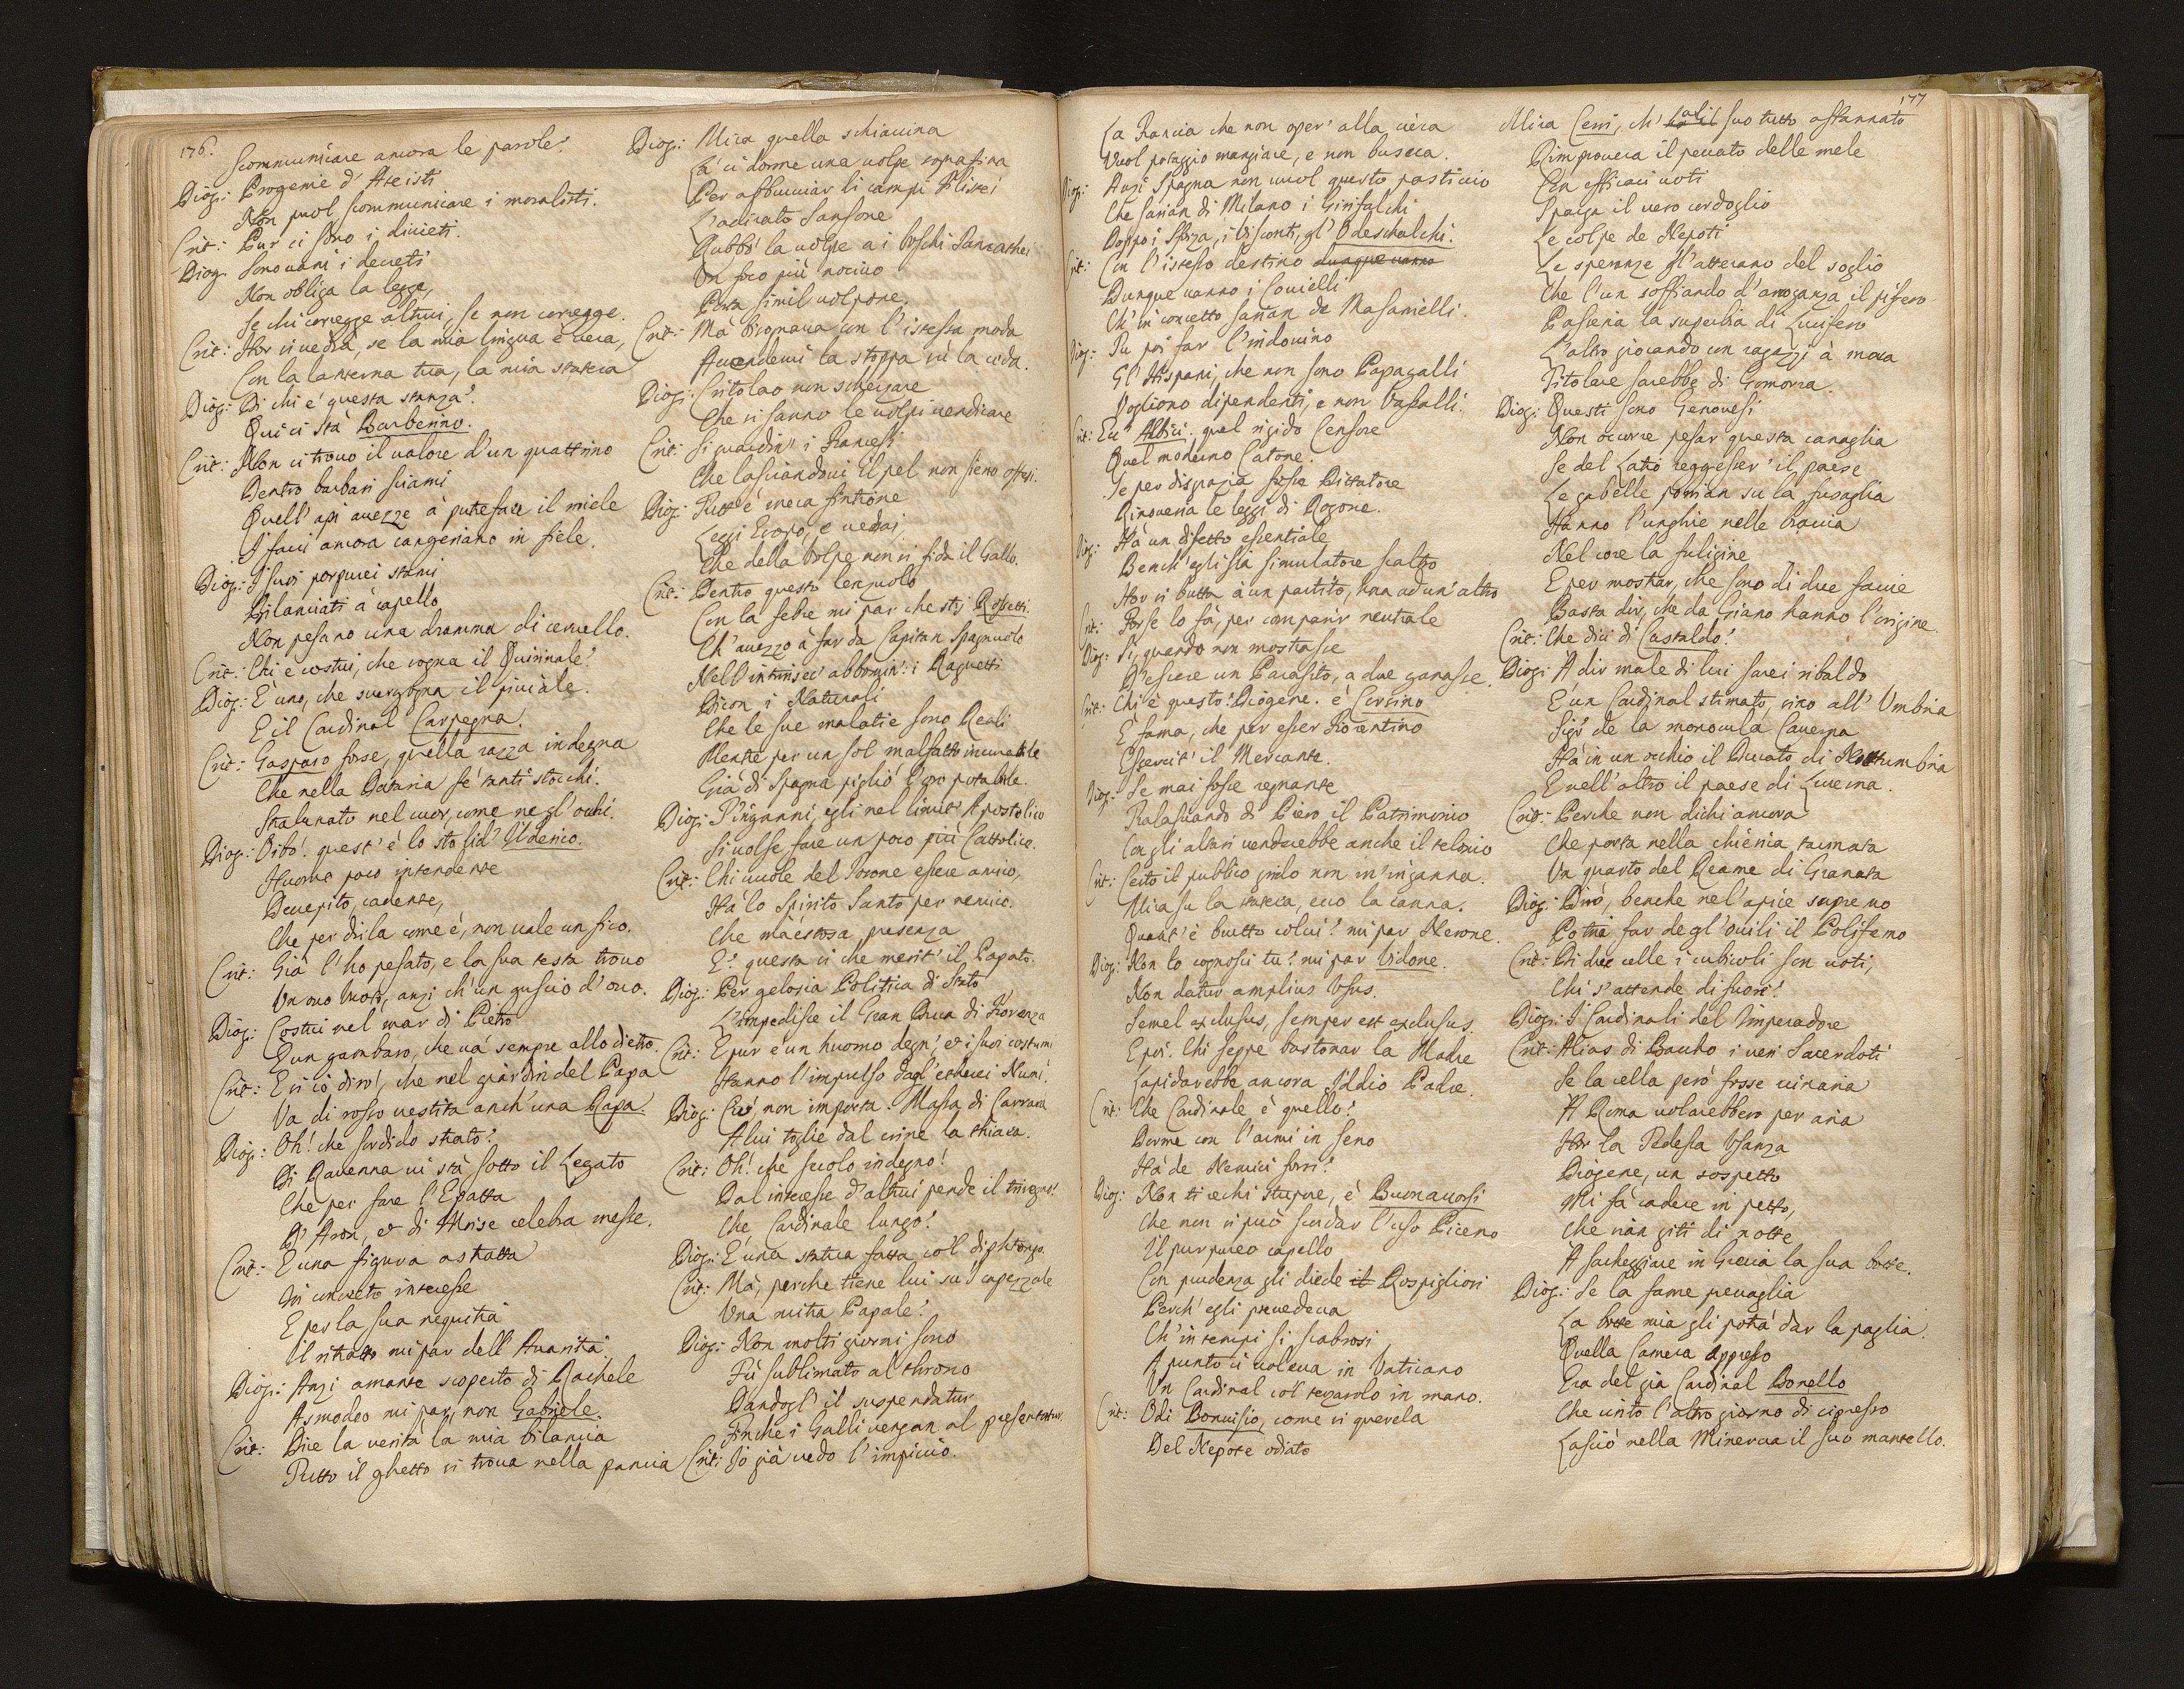 176.
Scommunicare ancora le parole?
Diog: Progenie d'Ateisti
Non puol scommunicare i moralisti.
Crit: Pur ci sono i divieti.
Diog. Sono vani i decreti
Non obliga la legge,
Se chi corregge altrui, se non corregge.
Crit: Hor si vedrà, se la mia lingua è vera,
Con la lanterna tua, la mia statera
Diog: Di chi e' questa stanza?
Qui ci stà Barberino.
Crit: Non ci trovo il valore d'un quattrino
Dentro barbari sciami
Quell'api avezze à putrefare il miele
I favi ancora cangeriano in fiele.
Diog: I suoi porpurei stami
Bilanciati à capello
Non pesano una dramma di cervello.
Crit: Chi e costui, che sogna il Quirinale?
Diog: E' uno, che svergogna il piviale.
E il Cardinal Carpegna.
Crit: Gasparo forse, quella razza indegna
Che nella Dataria fe' tanti stocchi?
Stralunato nel cuor, come negl'occhi.
Diog: Oibò! quest'è lo sto lid' Ulderico.
Huomo poco intendente
Decrepito, cadente,
Che per dirla come è, non vale un fico.
Crit: Già l'ho pesato, e la sua testa trovo
Un ovo vuoto, anzi ch'un guscio d'ovo.
Diog: Costui nel mar di Pietro
E' un gambaro, che và sempre allo dietro.
Crit: E ci io dirò, che nel giardin del Papa
Va di rosso vestita anch'una Rapa.
Diog: Oh! che sordido strato?
Di Ravenna vi stà sotto il Legato
Che per fare l'Epatta
D'Aron, et di Moise celebra messe.
Crit: E una figura astratta
In concreto interesse
E per la sua nequitia
Il ritratto mi par dell'Avaritia.
Diog: Anzi amante scoperto di Rachele
Asmodeo mi par, non Gabriele.
Crit: Dice la verità la mia bilancia
Tutto il ghetto si trova nella pancia
Diog: Mira quella schiavina
Là ci dorme una volpe soprafina
Per abbruciar li campi Filistei
L'adirato Sansone
Rubbò la volpe a i boschi
Un foco più nocivo
Porta simil volpone.
Crit: Mà bisognava con l'istessa moda
Accendervi la stoppa sù la coda.
Diog: Critolao non scherzare
Che si sanno le volpi vendicare
Crit: Si guardin' i Francesi
Che lasciandovi il pel non sieno offesi.
Diog: Tutt'è mera fintione
Leggi Esopo, e vedrai,
Che della Volpe non si fida il Gallo.
Crit: Dentro questo lenzuolo
Con la febre mi par che stij Rossetti.
Ch'avezzo à far da Capitan Spagnuolo
Nell'intrinsec' abbomin' i Raguetti
Dicon i Naturali
Che le sue malatie sono Reali
Mentre per un sol malfatto incurabile
Già di Spagna pigliò l'oro potabile.
Diog: T'inganni, egli nel limit' Apostolico
Si volse fare un poco più Cattolico.
Crit: Chi vuole del Tesone essere amico,
Hà lo Spirito Santo per nemico.
Che maestosa presenza
E' questa si che merit' il Papato.
Diog: Per gelosia Politica di Stato
L'impedisce il Gran Duca di Fiorenza
Crit: E pur è un huomo degn', et i suoi costumi
Hanno l'impulso dagl'etherei Numi.
Diog: Ciò, non importa. Massa di Carrara
A lui toglie dal crine la thiara.
Crit: Oh! che secolo indegno!
Dal interesse d'altrui pende il triregno?
Che Cardinale lungo?
Diog: E' una statua fatta co'l diphtongo.
Crit: Mà, perche tiene lui su'l capezzale
Una mitra Papale?
Diog: Non molti giorni sono
Fù sublimato al throno
Dandogl' il suspendatur
Finche i Galli vengan al presentatur.
Crit: Io già vedo l'impiccio.
177
La Francia che non oper' alla cieca
Vuol potaggio mangiare, e non buseca.
Diog: Anzi Spagna non vuol questo pasticcio
Che sarian di Milano i Girifalchi
Doppo i Sforza, i Visconti, gl'Odeschalchi.
Crit: Con l'istesso destino dunque vanno
Dunque vanno i Covielli
Ch'in concetto sarian de Masanielli.
Diog: Tu poi far l'indovino
Gl'Hispani, che non sono Papagalli
Vogliono dipendenti, e non Vassalli.
Crit: Ecc' Albici. quel rigido Censore
Quel moderno Catone.
Se per disgrazia fosse Dittatore
Rinoveria le leggi di Dragone.
Diog: Hà un difetto essentiale
Bench'egli sia simulatore scaltro
Hor si butta à un partito, hora ad un'altro
Crit: Forse lo fà, per comparir neutrale
Diog: Si, quando non mostrasse
D'essere un Parasito, a due ganasse.
Crit: Chi è questo? Diogene. è Corsino
E' fama, che per esser Fiorentino
Esercit' il Mercante.
Diog: Se mai fosse regnante
Tralasciando di Piero il Patrimonio
Con gli altari venderebbe anche il telonio
Crit: Certo il publico grido non m'inganna.
Mia fu la statera, ecco la canna.
Quant'è brutto colui? mi par Nerone.
Diog: Non lo cognosci tu? mi par Vidone.
Non datur amplius Usus.
Semel exclusus, semper est exclusus.
E poi. Chi seppe bastonar la Madre
Lapidarebbe ancora Iddio Padre.
Crit: Che Cardinale è quello?
Dorme con l'armi in seno
Hà de Nemici forsi?
Diog: Non ti rechi stupore, è Buonaccorsi
Che non si può scordar l'uso Piceno
Il purpureo capello
Con prudenza gli diede il Rospigliosi
Perch'egli prevedeva
Ch'in tempi si scabrosi
Apunto ci voleva in Vaticano
Un Cardinal col terzarolo in mano.
Crit: Odi Bonvisio, come si querela
Del Nepote odiato
Mira Cerri, ch' al suo tutto affannato
Rimprovera il peccato delle mele
Con efficaci voti
Sparga il vero cordoglio
Le colpe de Nepoti
Le speranze gl'atterrano del soglio
Che l'un soffiando d'arroganza il pifero
Passeria la superbia di Lucifero
L'altro giocando con ragazzi à mora
Titolare sarebbe di Gomorra.
Diog: Questi sono Genovesi
Non occorre pesar questa canaglia
Se del Latio reggesser' il paese
Le gabelle porrian su la fusaglia
Hanno l'unghie nelle braccia
Nel core la fuligine
E per mostrar, che sono di due faccie
Basta dir, che da Giano hanno l'origine.
Crit: Che dici di Castaldo?
Diog: A dir male di lui sarei ribaldo
E' un Cardinal stimato, sino all'Umbria
Sigr. de la monocula Caverna
Hà in un occhio il Ducato di Nottumbria
E nell'altro il paese di Lucerna.
Crit: Perche non dichi ancora
Che porta nella chierica tarmata
Un quarto del Reame di Granata
Diog: Dirò, benche nel'apice supremo
Potria far degl'ovili il Polifemo
Crit: Di due celle i cubicoli son voti,
Chi s'attende di fuori?
Diog: I Cardinali del Imperadore
Crit: Alias di Baccho i veri Sacerdoti
Se la cella però fosse vinaria
A Roma volarebbero per aria
Hor la Tedesca Usanza
Diogene, un sospetto
Mi fà cadere in petto,
Che vian giti di notte
A sacheggiare in Grecia la sua botte.
Diog: Se la fame prevaglia
La botte mia gli potrà dar la paglia.
Quella Camera appresso
Era del già Cardinal Bonello
Che urtò l'altro giorno di cipresso
Lasciò nella Minerva il suo mantello.